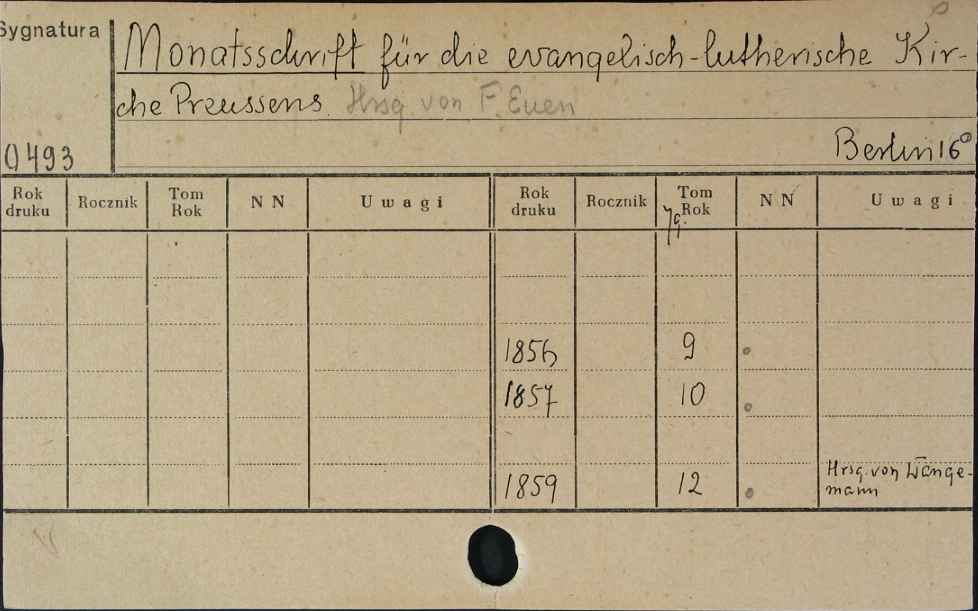 Sygnatura
Monatsschrift für die evangelisch-lutherische Kir-
che Preussens. Hrsg. von F. Euen
0493
Berlin 16°
Rok druku Rocznik Tom Rok N N Uwagi Rok druku Rocznik Tom Rok N N Uwagi
Jg.
1856 9
1857 10
1859 12 Hrsg. von Wange-
mann